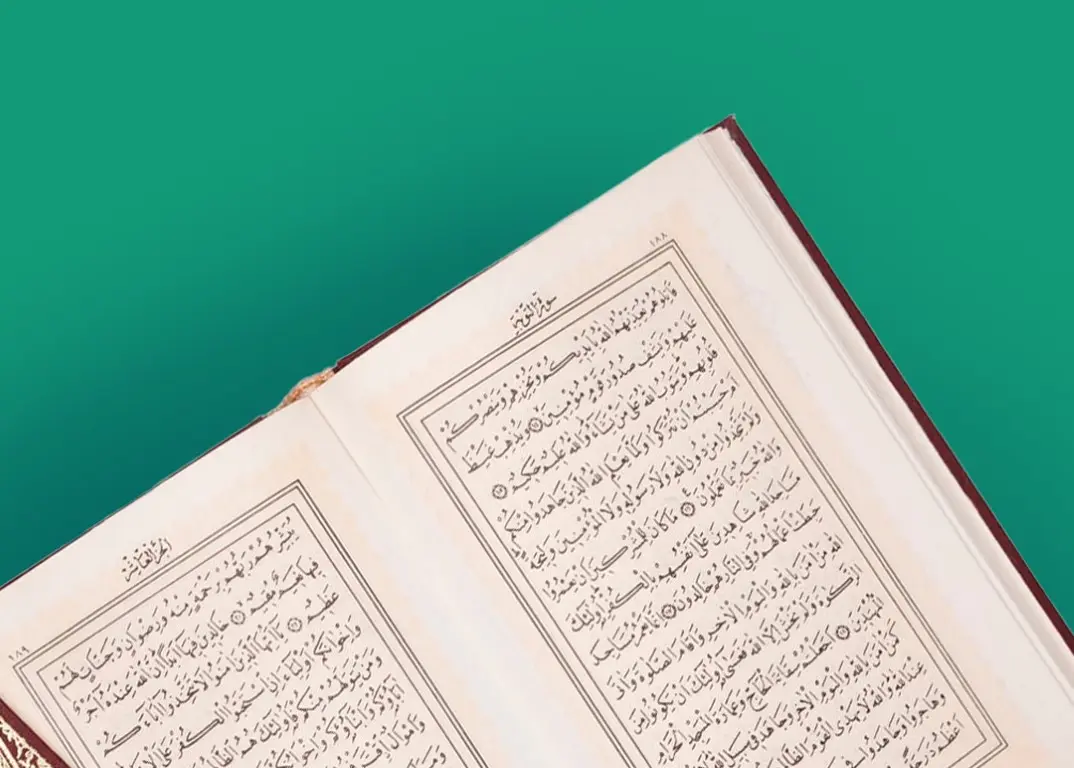 ١٨٨
سورة التوبة
قَاتِلُوهُمْ يُعَذِّبْهُمُ اللهُ بِأَيْدِيكُمْ وَيُخْزِهِمْ وَيَنْصُرْكُمْ
عَلَيْهِمْ وَيَشْفِ صُدُورَ قَوْمٍ مُؤْمِنِينَ ١٤ وَيُذْهِبْ غَيْظَ
قُلُوبِهِمْ وَيَتُوبُ اللهُ عَلَى مَنْ يَشَاءُ وَاللهُ عَلِيمٌ حَكِيمٌ ١٥
أَمْ حَسِبْتُمْ أَنْ تُتْرَكُوا وَلَمَّا يَعْلَمِ اللهُ الَّذِينَ جَاهَدُوا مِنْكُمْ
وَلَمْ يَتَّخِذُوا مِنْ دُونِ اللهِ وَلَا رَسُولِهِ وَلَا الْمُؤْمِنِينَ وَلِيجَةً
وَاللهُ خَبِيرٌ بِمَا تَعْمَلُونَ ١٦ مَا كَانَ لِلْمُشْرِكِينَ أَنْ يَعْمُرُوا
مَسَاجِدَ اللهِ شَاهِدِينَ عَلَى أَنْفُسِهِمْ بِالْكُفْرِ أُولَئِكَ
حَبِطَتْ أَعْمَالُهُمْ وَفِي النَّارِ هُمْ خَالِدُونَ ١٧ إِنَّمَا يَعْمُرُ مَسَاجِدَ
اللهِ مَنْ آمَنَ بِاللهِ وَالْيَوْمِ الْآخِرِ وَأَقَامَ الصَّلٰوةَ وَآتَى
الزَّكٰوةَ وَلَمْ يَخْشَ إِلَّا اللهَ فَعَسَى أُولَئِكَ أَنْ يَكُونُوا مِنَ
الْمُهْتَدِينَ ١٨ أَجَعَلْتُمْ سِقَايَةَ الْحَاجِّ وَعِمَارَةَ الْمَسْجِدِ الْحَرَامِ
كَمَنْ آمَنَ بِاللهِ وَالْيَوْمِ الْآخِرِ وَجَاهَدَ فِي سَبِيلِ اللهِ
عِنْدَ اللهِ وَاللهُ لَا يَهْدِي الْقَوْمَ الظَّالِمِينَ
وَهَاجَرُوا وَجَاهَدُوا فِي
أَعْظَمُ دَرَجَةً
الجزء العاشر
١٨٩
يُبَشِّرُهُمْ رَبُّهُمْ بِرَحْمَةٍ مِنْهُ وَرِضْوَانٍ وَجَنَّاتٍ لَهُمْ
فِيهَا نَعِيمٌ مُقِيمٌ ٢١ خَالِدِينَ فِيهَا أَبَدًا إِنَّ اللهَ عِنْدَهُ أَجْرٌ
عَظِيمٌ ٢٢ يَا أَيُّهَا الَّذِينَ آمَنُوا لَا تَتَّخِذُوا آبَاءَكُمْ
وَإِخْوَانَكُمْ أَوْلِيَاءَ إِنِ اسْتَحَبُّوا الْكُفْرَ عَلَى الْإِيمَانِ
وَمَنْ يَتَوَلَّهُمْ مِنْكُمْ فَأُولَئِكَ هُمُ الظَّالِمُونَ
آبَاؤُكُمْ وَأَبْنَاؤُكُمْ وَإِخْوَانُكُمْ
وَأَمْوَالٌ اقْتَرَفْتُمُوهَا